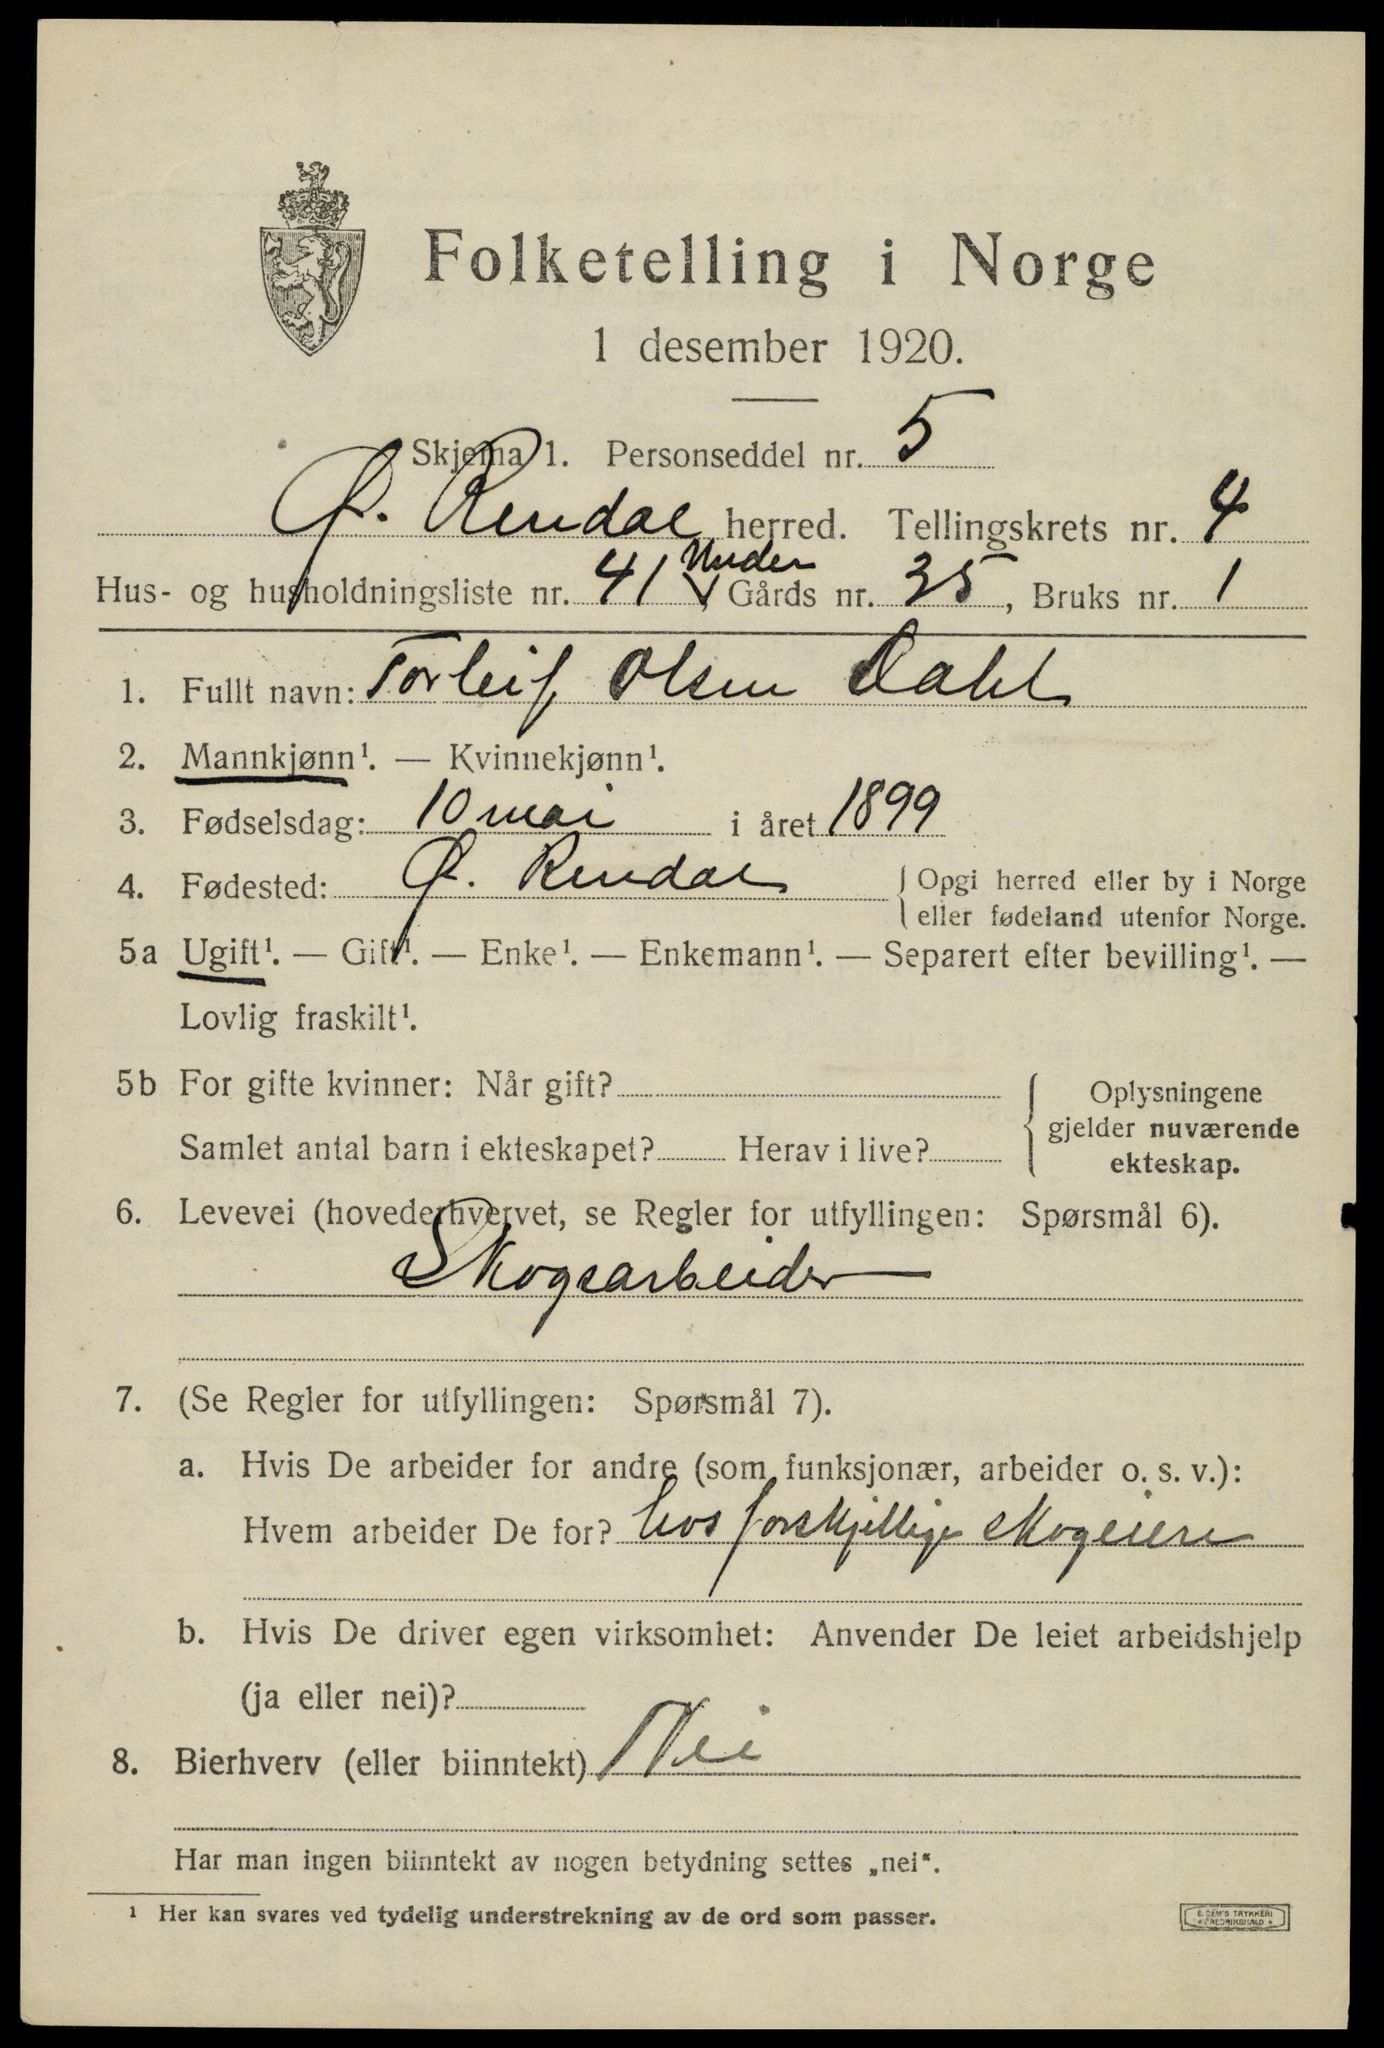 Folketelling i Norge
1 desember 1920.
Skjema 1. Personseddel nr. 5
Ø. Rendal herred. Tellingskrets nr. 4
Under
Hus- og husholdningsliste nr. 41, Gårds nr. 35, Bruks nr. 1
1. Fullt navn: Torleif Olsen Dahl
2. Mannkjønn¹. — Kvinnekjønn¹.
3. Fødselsdag: 10 mai i året 1899
4. Fødested: Ø. Rendal { Opgi herred eller by i Norge
eller fødeland utenfor Norge.
5a Ugift¹. — Gift¹. — Enke¹. — Enkemann¹. — Separert efter bevilling¹. —
Lovlig fraskilt¹.
5b For gifte kvinner: Når gift? { Oplysningene
gjelder nuværende
Samlet antal barn i ekteskapet? Herav i live? ekteskap.
6. Levevei (hovederhvervet, se Regler for utfyllingen: Spørsmål 6).
Skogsarbeider
7. (Se Regler for utfyllingen: Spørsmål 7).
a. Hvis De arbeider for andre (som funksjonær, arbeider o. s. v.):
Hvem arbeider De for? hos forskjellige skogeiere
b. Hvis De driver egen virksomhet: Anvender De leiet arbeidshjelp
(ja eller nei)?
8. Bierhverv (eller biinntekt) Nei
Har man ingen biinntekt av nogen betydning settes „nei“.
¹ Her kan svares ved tydelig understrekning av de ord som passer.
E. SEM'S TRYKKERI
FREDRIKSHALD